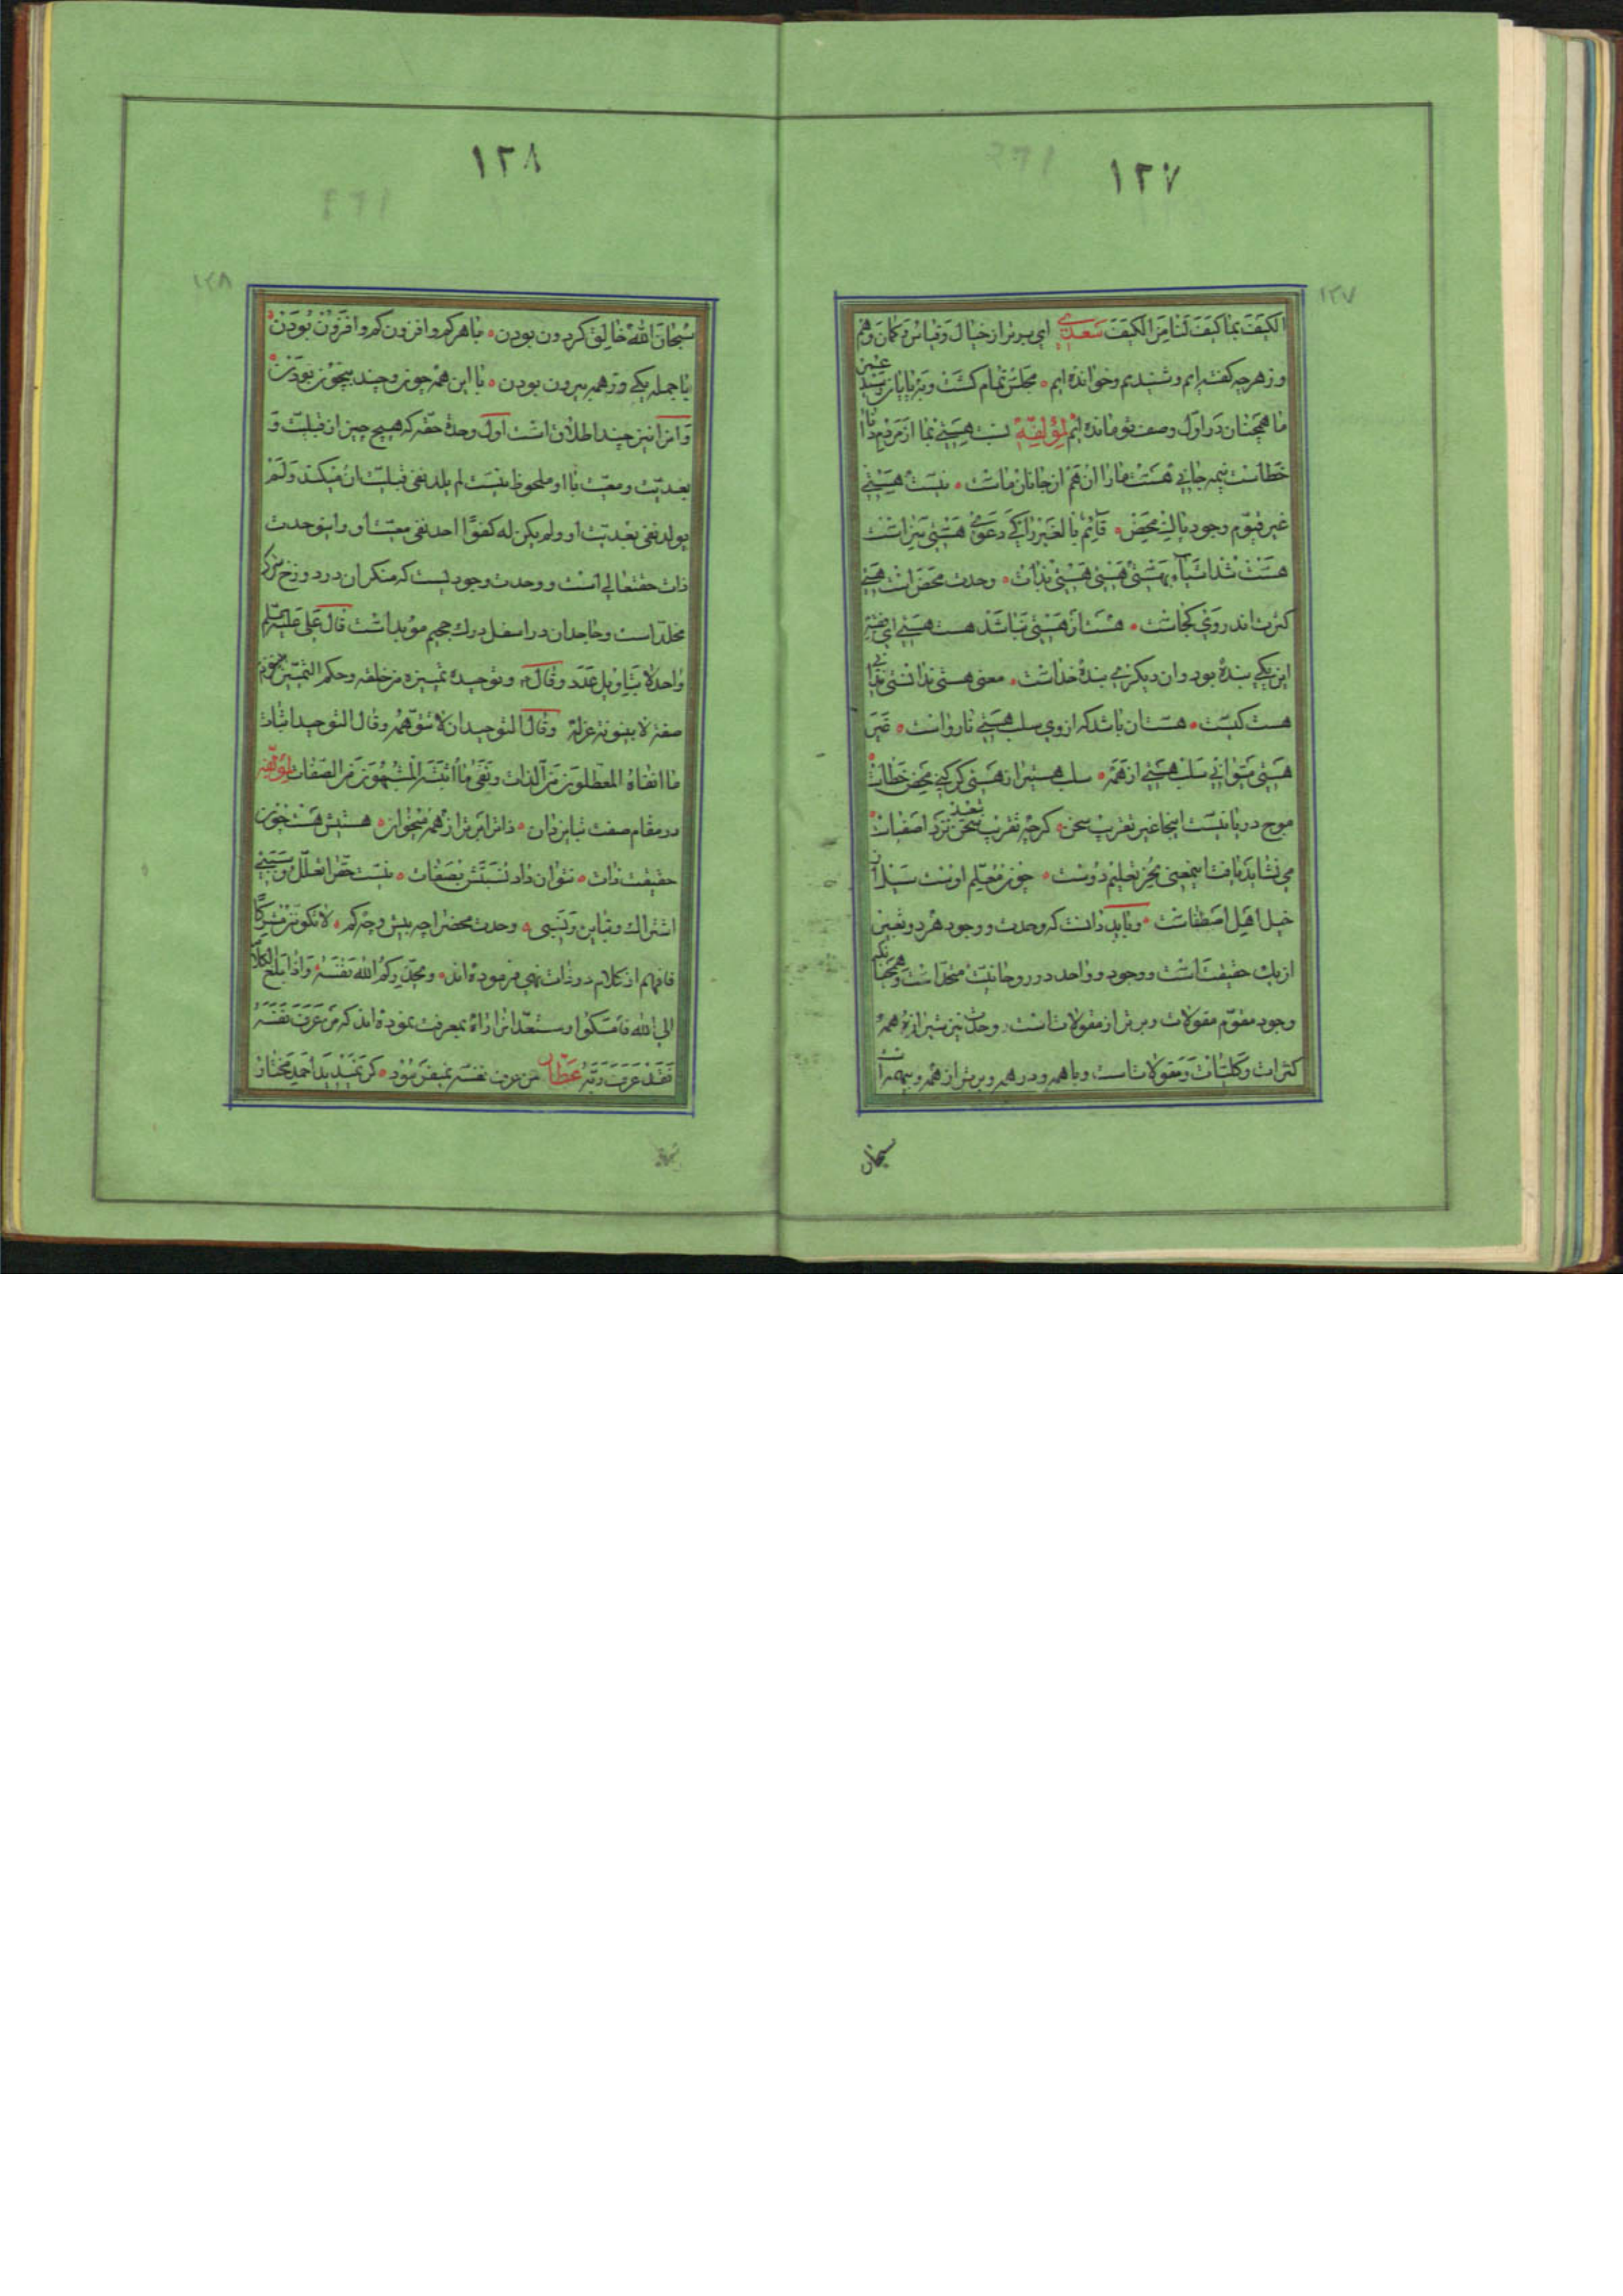 ١٢٧
١٢٧
الکیف بما کیف لنا من الکیف سعدی ای برتر از خیال و قیاس و کمان و وهم
وز هر چه گفته ایم و شنیدیم و خوانده ایم • مجلس تمام گشت و بپایان رسید عمر
ما همچنان در اول وصف تو مانده ایم لمؤلفه نسبت هستی بما از مردم دانا
خطاست نیمه جانی هست ما را آن هم از جانان ماست • نیست هستی
غیر قیوم وجود بالذ محض • قائم بالغیر را کی دعوی هستی سزاست
هست شد اشیا بهستی هستی هستی بذات • وحدت محض است هستی
کثرت اندر وی کجاست • هست از هستی نباشد هست هستی ای فقیر
این یکی بنده بود وان دیگری بنده خداست • معنی هستی ندانستی
هست کیست • هست آن باشد که از وی سلب هستی نارواست • غیر
هستی میتوانی سلب هستی از همه • سلب هستی از هستی گر کنی محض خطاست
موج دریا نیست اینجا غیر تقریب سخن • گرچه تقریب سخن نزد اصفیاست
می نشاید یافت اینمعنی بجز تعلیم دوست • چون معلم اوست سید
خیل اهل اصطفاست • و باید دانست که وحدت و وجود هر دو تعین
از یک حقیقت است و وجود و واحد در روحانیت متحد است و همچنانکه
وجود مقوم مقولات و برتر از مقولات است، وحدت نیز شیرازه همه
کثرات و کلیات و مقولات است و با همه و در همه و برتر از همه و بیهمه است
سبحان
١٢٨
١٢٨
سبحان الله خالق کردون بودن • با هر کم و افزون کم و افزون بودن •
با جمله یکی وز همه بیرون بودن • با این همه چون و چند بیچون بودن •
و آنرا نیز چند اطلاق است اول وحدة حقه که هیچ چیز از قبلیت و
بعدیت و معیت با او ملحوظ نیست لم یلد نفی قبلیت آن میکند و لم
یولد نفی بعدیت او و لم یکن له کفوا احد نفی معیت او و اینوحدت
ذات حقتعالی است و وحدت وجودیست که منکر آن در دوزخ شرک
مخلد است و جاحد آن در اسفل درک جحیم مؤبد است قال علی علیه السلم
واحد لا بتاویل عدد و قال و توحیده تمییزه من خلقه و حکم التمییز بینونة
صفة لا بینونة عزلة و قال التوحید ان لا تتوهمه و قال التوحید اثبات
ما انفاه المعطلون من الذات و نفی ما اثبته المشبهون من الصفات لمؤلفه
در مقام صفت تباین دان • ذات را برتر از همه میخوان • هستیش هست چون
حقیقت ذات • نتوان داد نسبتش بصفات • نیست حق را تعلل و سببی
اشتراک و تباین و نسبی • وحدت محض را چه بیش و چه کم • لا تکونن مشرکا
فافهم از کلام در ذات نهی فرموده اند • و یحذرکم الله نفسه • و اذا بلغ الکلام
الی الله فامسکوا و مستعدان را راه بمعرفت نموده اند که من عرف نفسه
فقد عرف ربه عطار من عرف نفسه بفرمود • احمد مختار